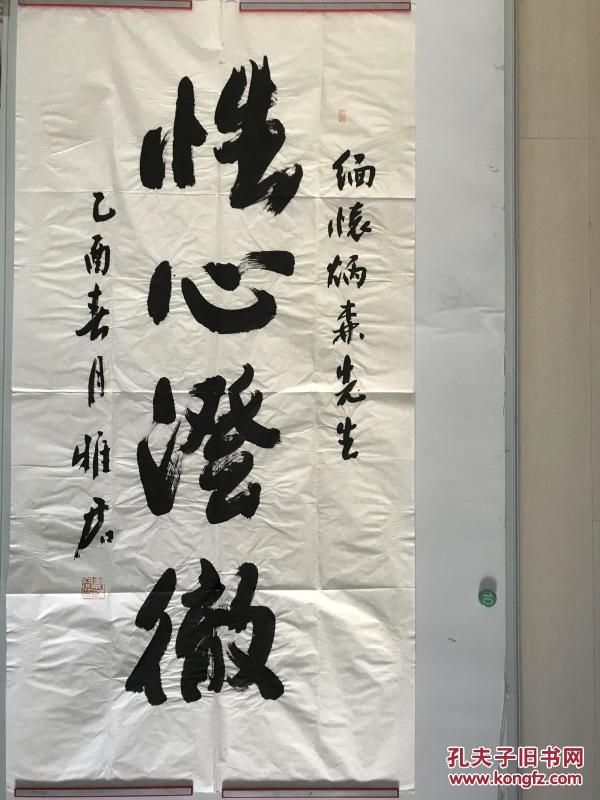 缅懷炳森先生
性心澄徹
乙酉春月雅君
10
孔夫子旧书网
www.kongfz.com